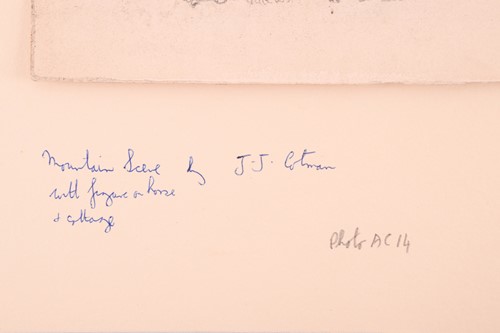 Mountain Scene by J-J- Cotman
with figure on horse
& cottage
Photo AC 14